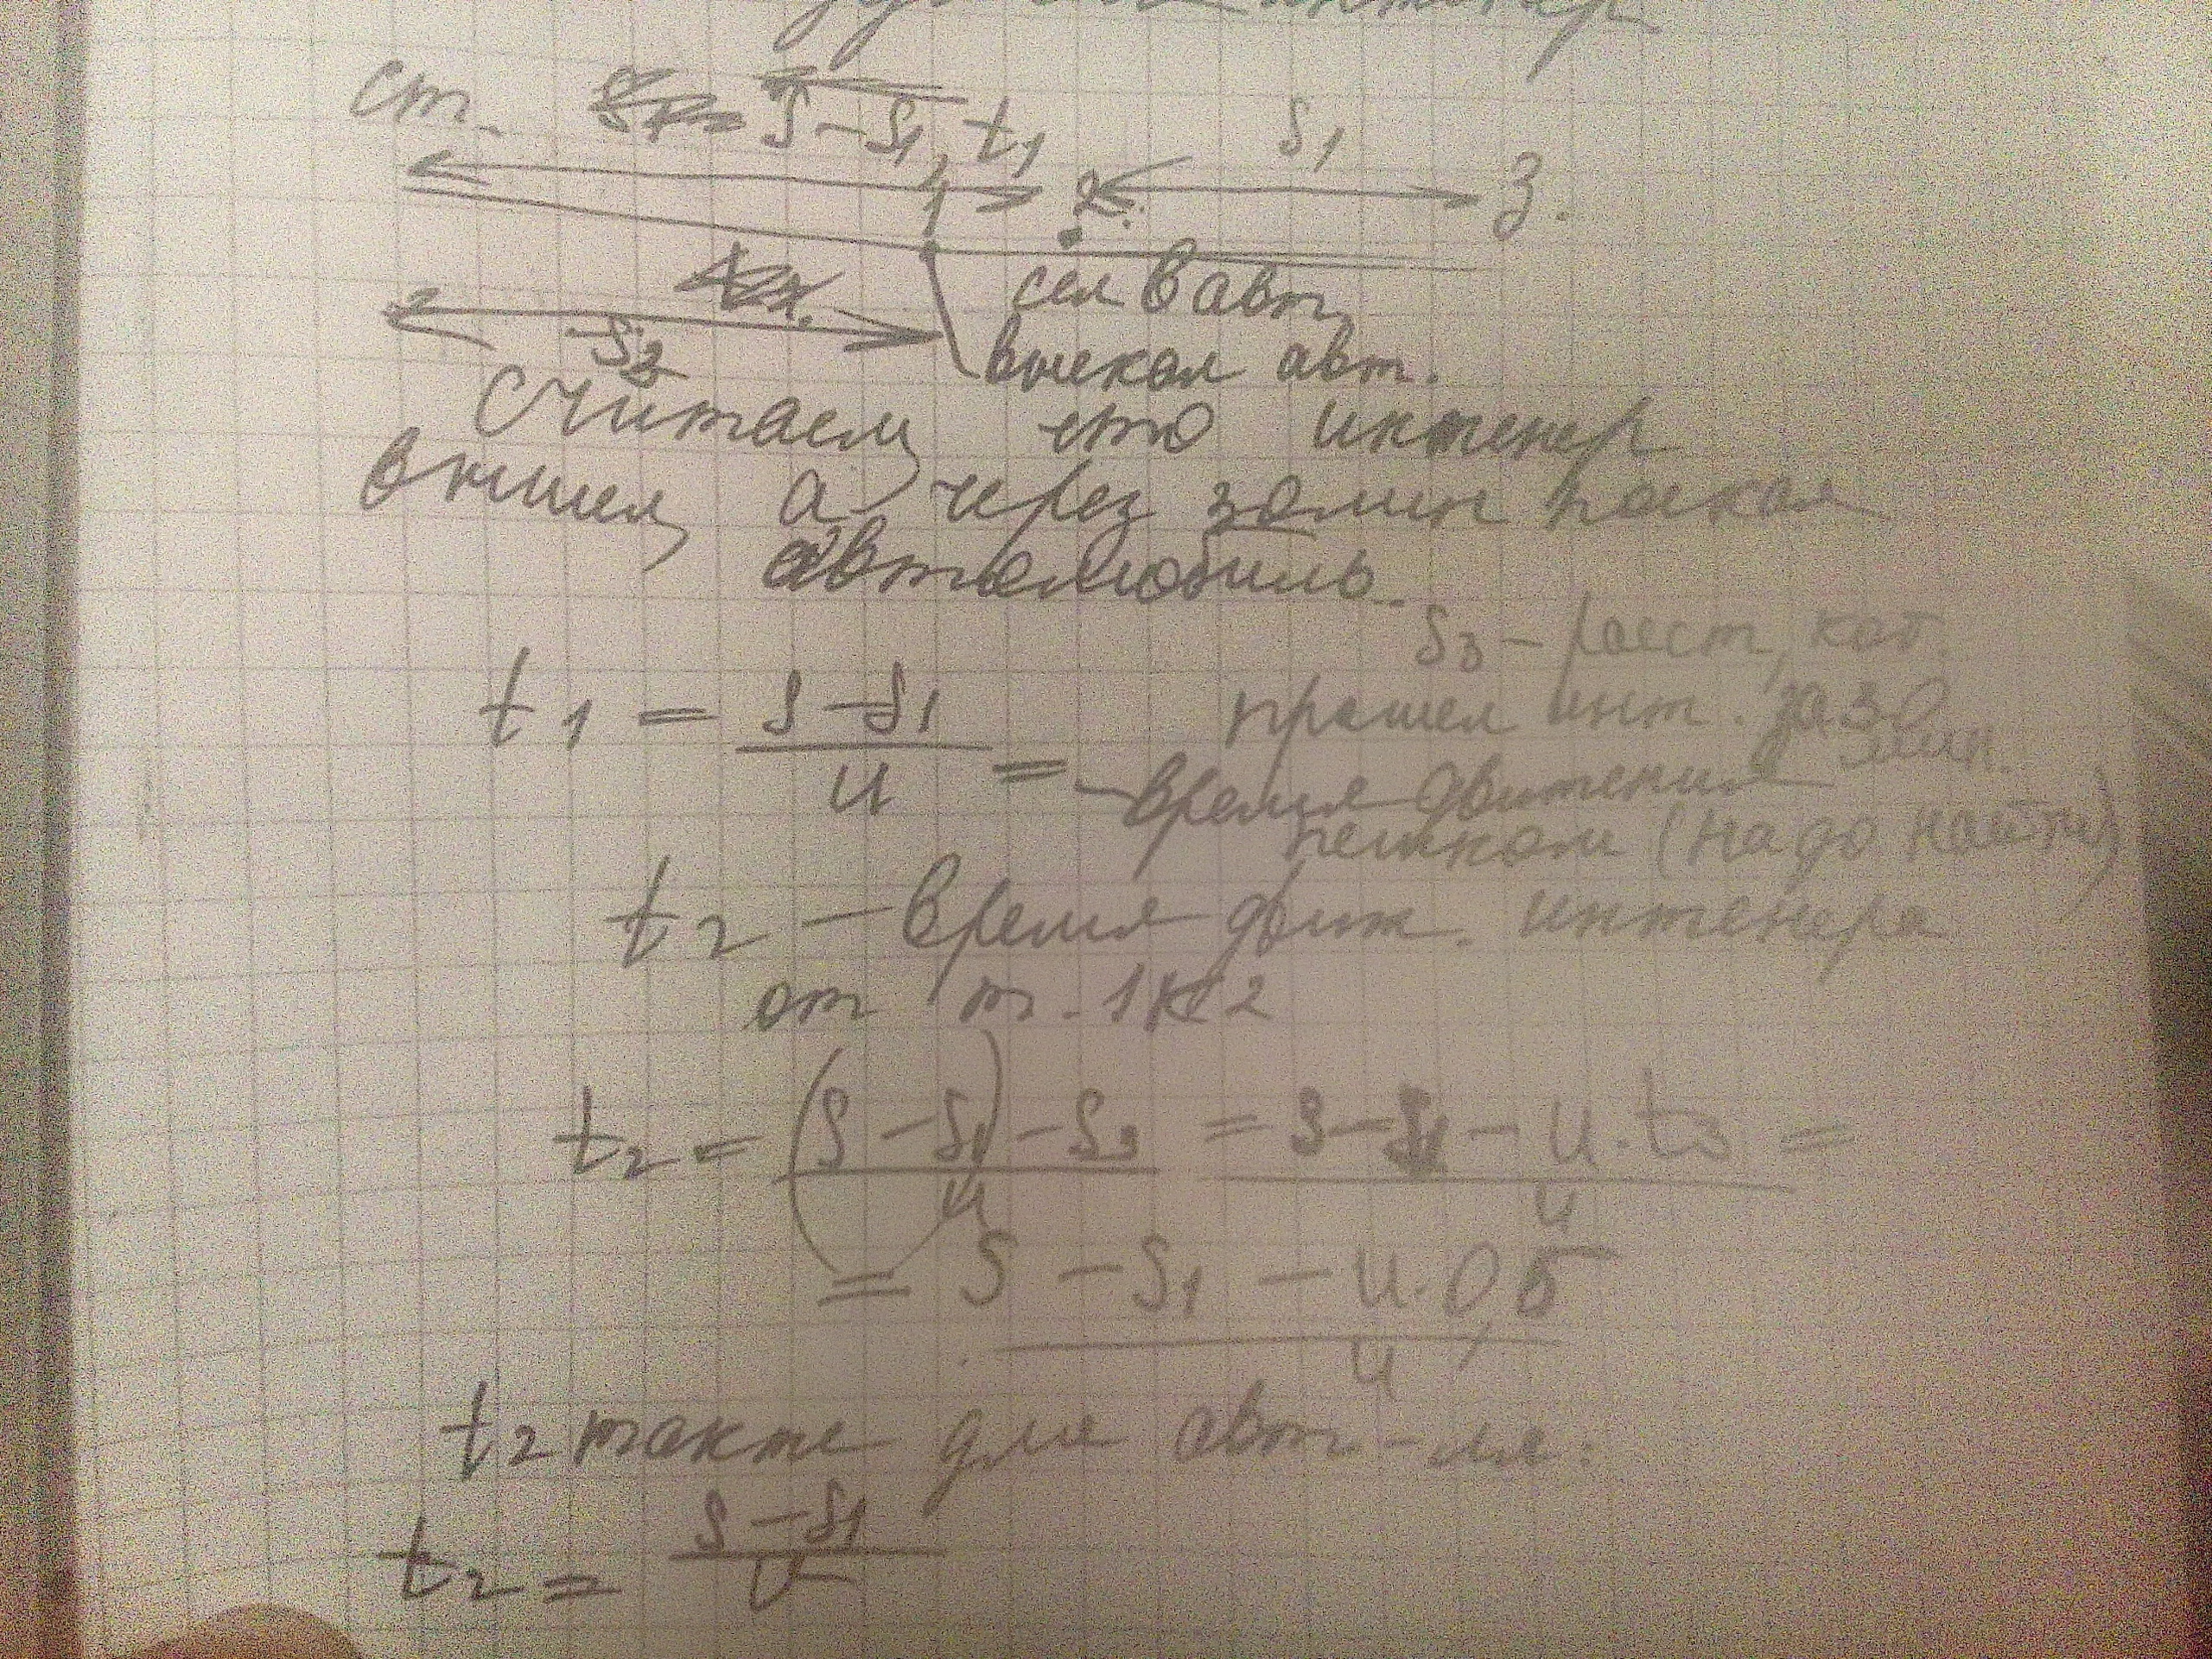 инженер
ст. S - S1, t1 S1
1 2. З.
сел в авт.
S3
выехал авт.
Считаем, что инженер
вышел, а через 30 мин поехал
автомобиль.
S3 - расст, кот.
прошел инж. за 30 мин.
t1 = S - S1 / u = - время движения
пешком (надо найти)
t2 - время движ. инженера
от т. 1 к 2
t2 = (S - S1) - S3 / u = S - S1 - u · t3 / u =
= S - S1 - u · 0,5 / u
t2 также для авт-ля:
t2 = S - S1 / v